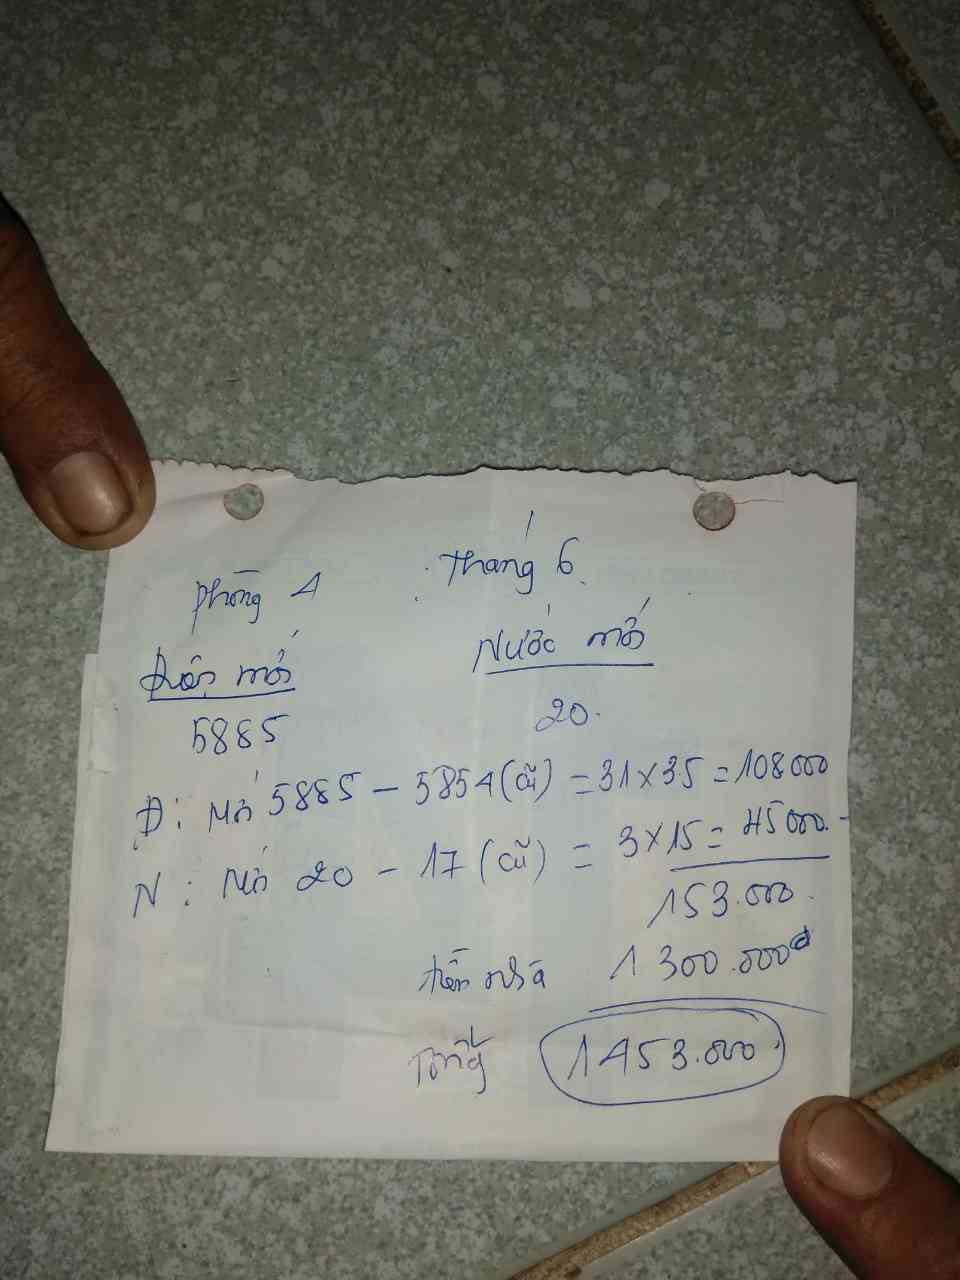 Phòng 4 Tháng 6
Điện mới Nước mới
5885 20
Đ: Mới 5885 - 5854 (cũ) = 31 x 35 = 108000
N: Mới 20 - 17 (cũ) = 3 x 15 = 45000
153.000
tiền nhà 1300.000đ
Tổng 1453.000